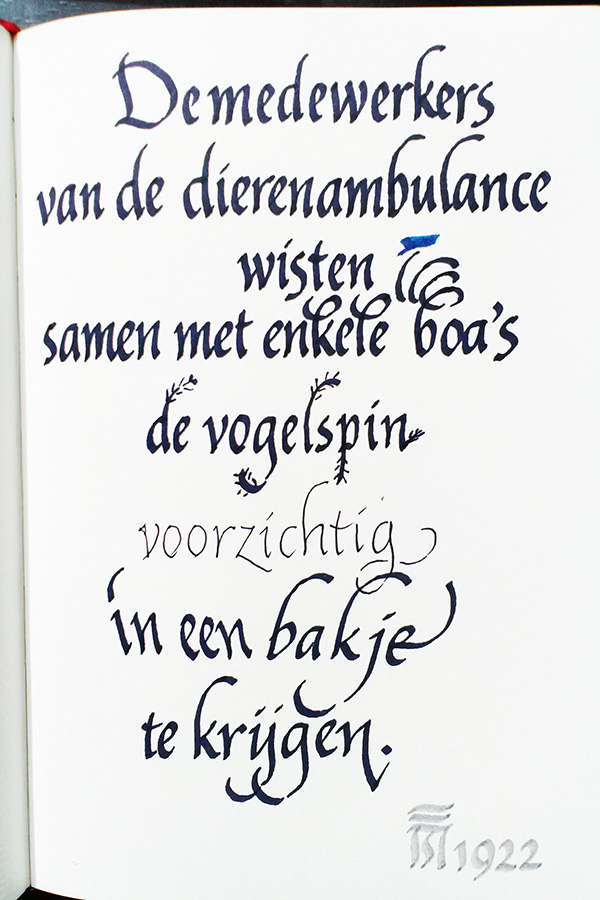 De medewerkers
van de dierenambulance
wisten
samen met enkele boa's
de vogelspin
voorzichtig
in een bakje
te krijgen.
1922